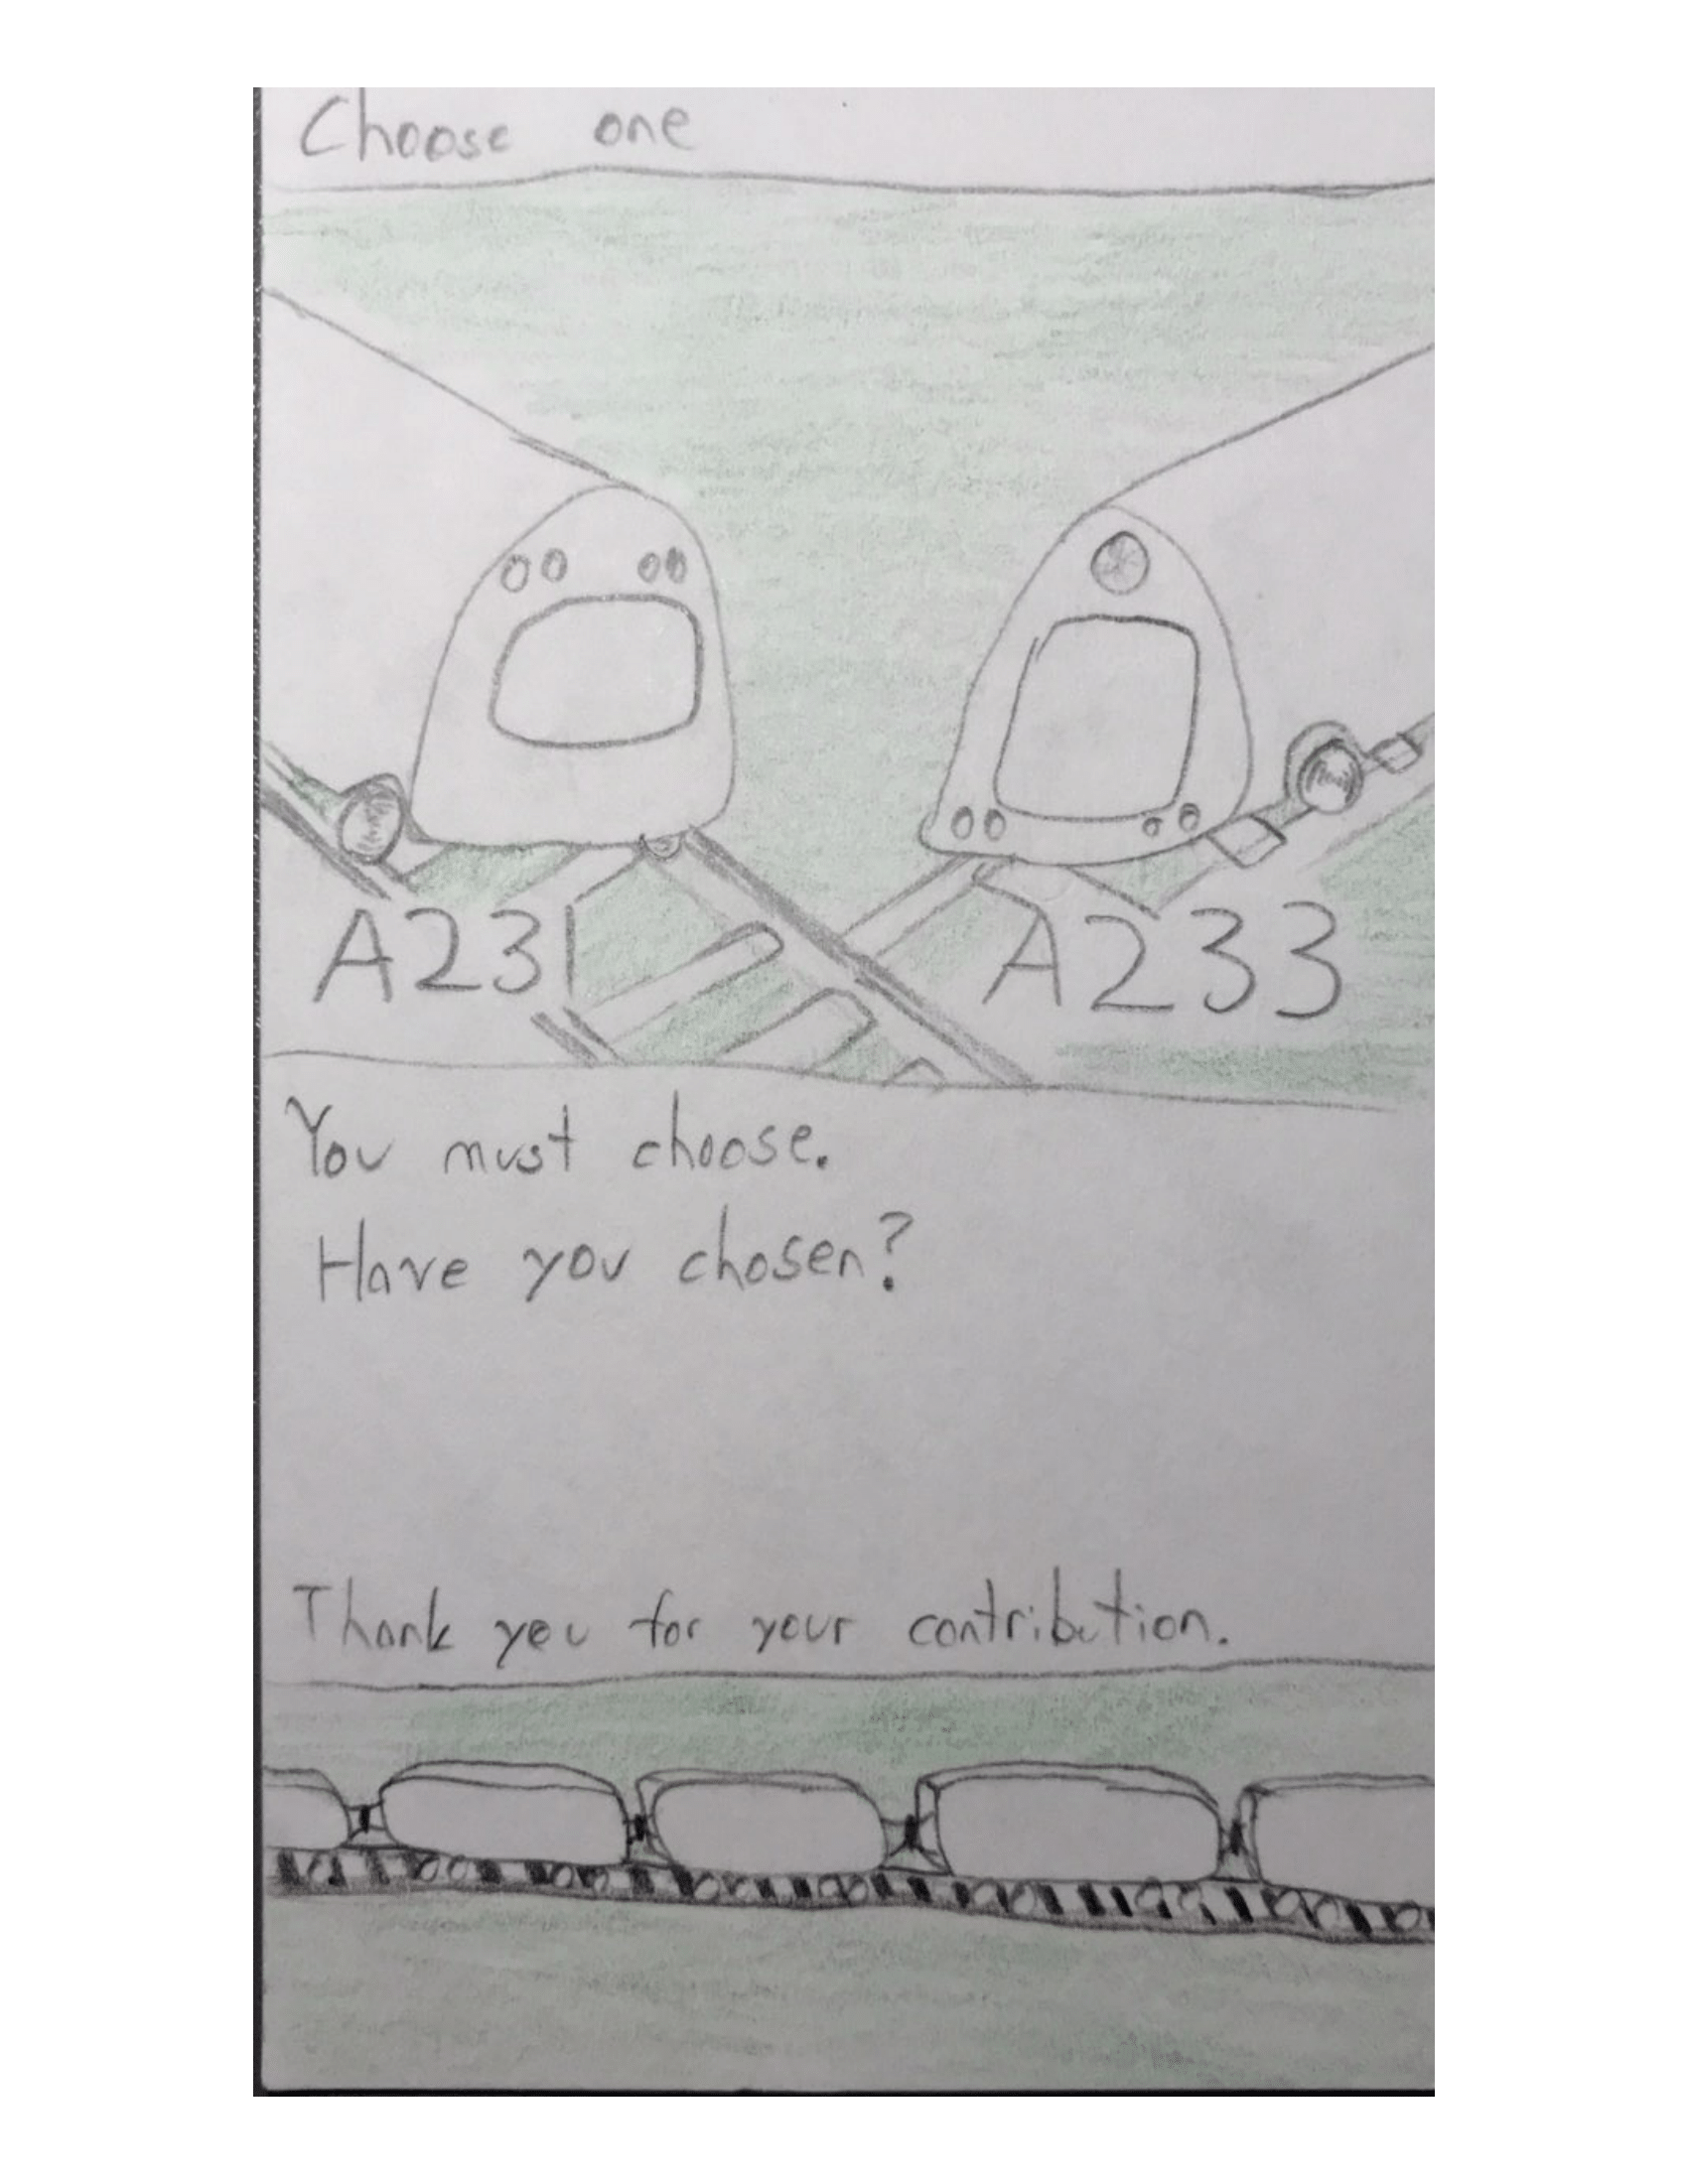 Choose one
A231 A233
You must choose.
Have you chosen?
Thank you for your contribution.